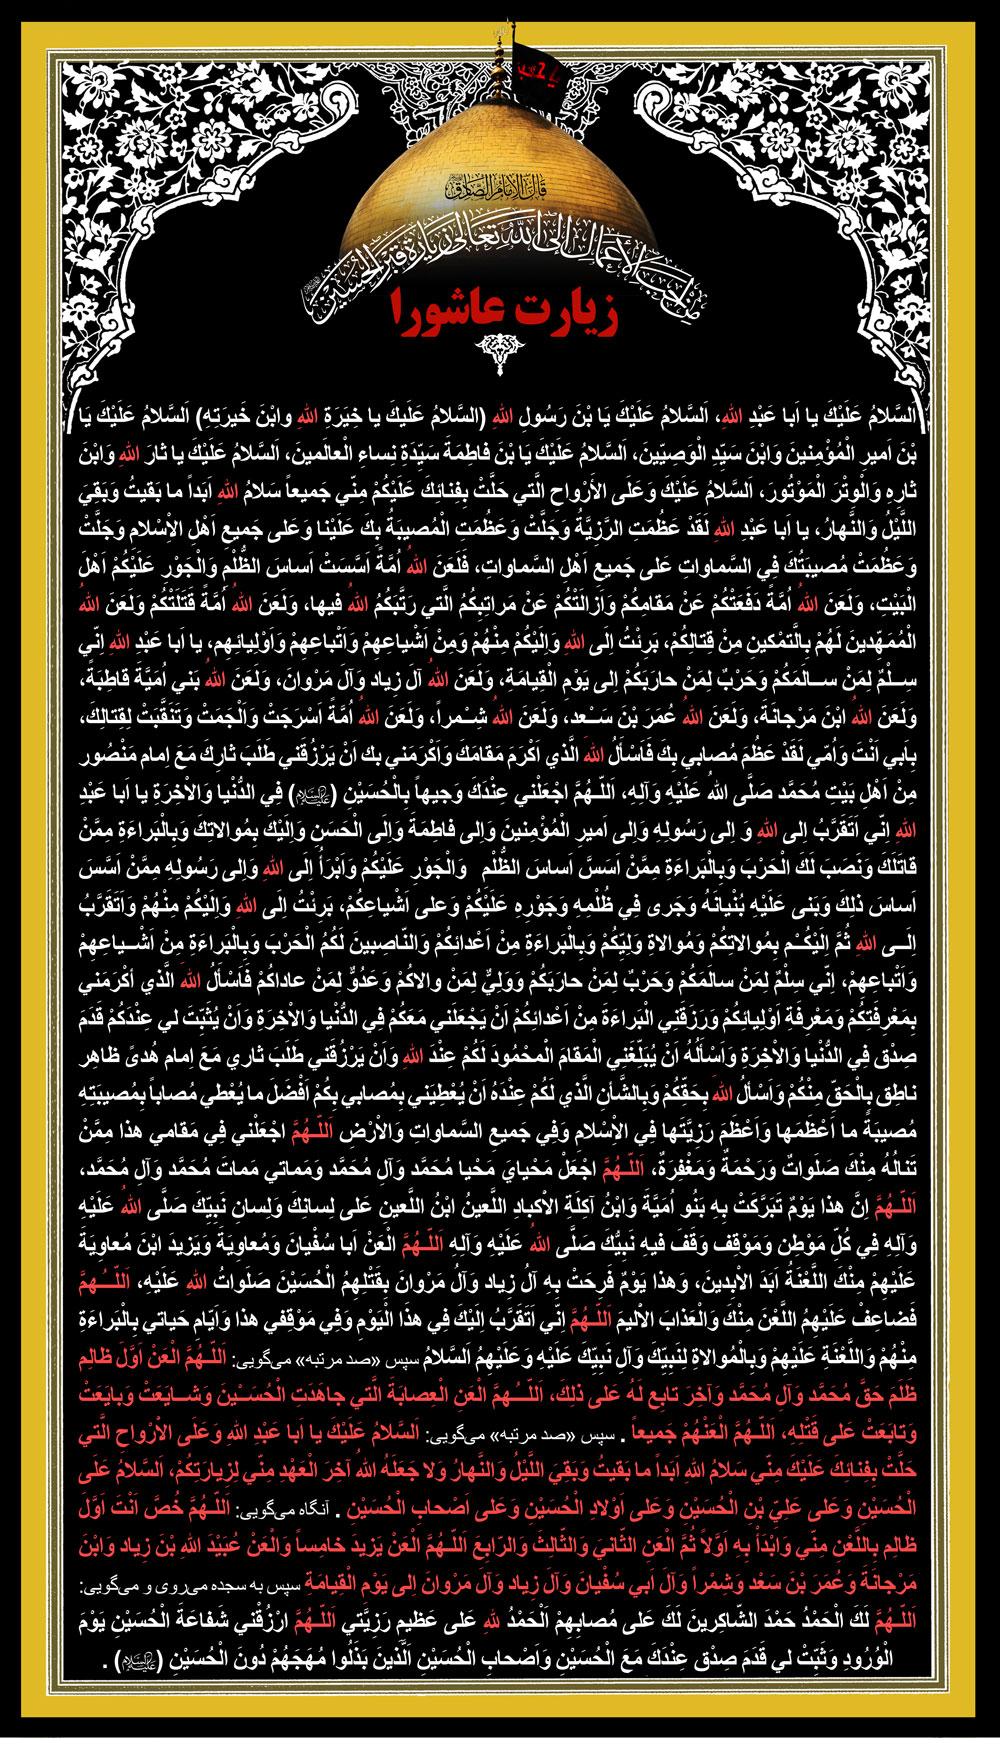 قَالَ الإِمَامُ الصَّادِقُ
مِنْ أَحَبِّ الأَعْمَالِ إِلَى اللّٰهِ تَعَالَى زِيَارَةُ قَبْرِ الْحُسَيْنِ
زیارت عاشورا
اَلسَّلامُ عَلَيْكَ يا اَبا عَبْدِ اللهِ، اَلسَّلامُ عَلَيْكَ يَا بْنَ رَسُولِ اللهِ (السَّلامُ عَلَيكَ يا خِيَرَةِ اللهِ وابْنَ خَيرَتِه) اَلسَّلامُ عَلَيْكَ يَا
بْنَ اَميرِ الْمُؤْمِنينَ وَابْنَ سَيِّدِ الْوَصِيّينَ، اَلسَّلامُ عَلَيْكَ يَا بْنَ فاطِمَةَ سَيِّدَةِ نساءِ الْعالَمينَ، اَلسَّلامُ عَلَيْكَ يا ثارَ اللهِ وَابْنَ
ثارِهِ وَالْوِتْرَ الْمَوْتُورَ، اَلسَّلامُ عَلَيْكَ وَعَلَى الأَرْواحِ الَّتي حَلَّتْ بِفِنائِكَ عَلَيْكُمْ مِنّي جَميعاً سَلامُ اللهِ اَبَداً ما بَقيتُ وَبَقِيَ
اللَّيْلُ وَالنَّهارُ، يا اَبا عَبْدِ اللهِ لَقَدْ عَظُمَتِ الرَّزِيَّةُ وَجَلَّتْ وَعَظُمَتِ الْمُصيبَةُ بِكَ عَلَيْنا وَعَلى جَميعِ اَهْلِ الاِْسْلام وَجَلَّتْ
وَعَظُمَتْ مُصيبَتُكَ فِي السَّماواتِ عَلى جَميعِ اَهْلِ السَّماواتِ، فَلَعَنَ اللهُ اُمَّةً اَسَّسَتْ اَساسَ الظُّلْمِ وَالْجَوْرِ عَلَيْكُمْ اَهْلَ
الْبَيْتِ، وَلَعَنَ اللهُ اُمَّةً دَفَعَتْكُمْ عَنْ مَقامِكُمْ وَاَزالَتْكُمْ عَنْ مَراتِبِكُمُ الَّتي رَتَّبَكُمُ اللهُ فيها، وَلَعَنَ اللهُ اُمَّةً قَتَلَتْكُمْ وَلَعَنَ اللهُ
الْمُمَهِّدينَ لَهُمْ بِالتَّمْكينِ مِنْ قِتالِكُمْ، بَرِئْتُ اِلَى اللهِ وَاِلَيْكُمْ مِنْهُمْ وَمِنْ اَشْياعِهِمْ وَاَتْباعِهِمْ وَاَوْلِيائِهِم، يا اَبا عَبْدِ اللهِ اِنّي
سِــلْمٌ لِمَنْ ســالَمَكُمْ وَحَرْبٌ لِمَنْ حارَبَكُمْ اِلى يَوْمِ الْقِيامَةِ، وَلَعَنَ اللهُ آلَ زِياد وَآلَ مَرْوانَ، وَلَعَنَ اللهُ بَني اُمَيَّةَ قاطِبَةً،
وَلَعَنَ اللهُ ابْنَ مَرْجانَةَ، وَلَعَنَ اللهُ عُمَرَ بْنَ سَــعْد، وَلَعَنَ اللهُ شِــمْراً، وَلَعَنَ اللهُ اُمَّةً اَسْرَجَتْ وَاَلْجَمَتْ وَتَنَقَّبَتْ لِقِتالِكَ،
بِاَبي اَنْتَ وَاُمّي لَقَدْ عَظُمَ مُصابي بِكَ فَاَسْأَلُ اللهَ الَّذي اَكْرَمَ مَقامَكَ وَاَكْرَمَني بِكَ اَنْ يَرْزُقَني طَلَبَ ثارِكَ مَعَ اِمام مَنْصُور
مِنْ اَهْلِ بَيْتِ مُحَمَّد صَلَّى اللهُ عَلَيْهِ وَآلِهِ، اَللّـهُمَّ اجْعَلْني عِنْدَكَ وَجيهاً بِالْحُسَيْنِ (عَلَيْهِ السَّلام) فِي الدُّنْيا وَالاْخِرَةِ يا اَبا عَبْدِ
اللهِ اِنّي اَتَقَرَّبُ اِلى اللهِ وَ اِلى رَسُولِهِ وَاِلى اَميرِ الْمُؤْمِنينَ وَاِلى فاطِمَةَ وَاِلَى الْحَسَنِ وَاِلَيْكَ بِمُوالاتِكَ وَبِالْبَراءَةِ مِمَّنْ
قاتَلَكَ وَنَصَبَ لَكَ الْحَرْبَ وَبِالْبَراءَةِ مِمَّنْ اَسَسَّ اَساسَ الظُّلْمِ وَالْجَوْرِ عَلَيْكُمْ وَاَبْرَأُ اِلَى اللهِ وَاِلى رَسُولِهِ مِمَّنْ اَسَّسَ
اَساسَ ذلِكَ وَبَنى عَلَيْهِ بُنْيانَهُ وَجَرى فِي ظُلْمِهِ وَجَوْرِهِ عَلَيْكُمْ وَعلى اَشْياعِكُمْ، بَرِئْتُ اِلى اللهِ وَاِلَيْكُمْ مِنْهُمْ وَاَتَقَرَّبُ
اِلَــى اللهِ ثُمَّ اِلَيْكُــمْ بِمُوالاتِكُمْ وَمُوالاةِ وَلِيِّكُمْ وَبِالْبَراءَةِ مِنْ اَعْدائِكُمْ وَالنّاصِبينَ لَكُمُ الْحَرْبَ وَبِالْبَراءَةِ مِنْ اَشْــياعِهِمْ
وَاَتْباعِهِمْ، اِنّي سِلْمٌ لِمَنْ سالَمَكُمْ وَحَرْبٌ لِمَنْ حارَبَكُمْ وَوَلِيٌّ لِمَنْ والاكُمْ وَعَدُوٌّ لِمَنْ عاداكُمْ فَاَسْأَلُ اللهَ الَّذي اَكْرَمَني
بِمَعْرِفَتِكُمْ وَمَعْرِفَةِ اَوْلِيائِكُمْ وَرَزَقَني الْبَراءَةَ مِنْ اَعْدائِكُمْ اَنْ يَجْعَلَني مَعَكُمْ فِي الدُّنْيا وَالاْخِرَةِ وَاَنْ يُثَبِّتَ لي عِنْدَكُمْ قَدَمَ
صِدْق فِي الدُّنْيا وَالاْخِرَةِ وَاَسْأَلُهُ اَنْ يُبَلِّغَنِي الْمَقامَ الْمَحْمُودَ لَكُمْ عِنْدَ اللهِ وَاَنْ يَرْزُقَني طَلَبَ ثاري مَعَ اِمام هُدىً ظاهِر
ناطِق بِالْحَقِّ مِنْكُمْ وَاَسْألُ اللهَ بِحَقِّكُمْ وَبِالشَّأنِ الَّذي لَكُمْ عِنْدَهُ اَنْ يُعْطِيَني بِمُصابي بِكُمْ اَفْضَلَ ما يُعْطي مُصاباً بِمُصيبَتِهِ
مُصيبَةً ما اَعْظَمَها وَاَعْظَمَ رَزِيَّتَها فِي الاِْسْلامِ وَفِي جَميعِ السَّماواتِ وَالاْرْضِ اَللّـهُمَّ اجْعَلْني فِي مَقامي هذا مِمَّنْ
تَنالُهُ مِنْكَ صَلَواتٌ وَرَحْمَةٌ وَمَغْفِرَةٌ، اَللّـهُمَّ اجْعَلْ مَحْيايَ مَحْيا مُحَمَّد وَآلِ مُحَمَّد وَمَماتي مَماتَ مُحَمَّد وَآلِ مُحَمَّد،
اَللّـهُمَّ اِنَّ هذا يَوْمٌ تَبَرَّكَتْ بِهِ بَنُو اُمَيَّةَ وَابْنُ آكِلَةِ الاْكبادِ اللَّعينُ ابْنُ اللَّعينِ عَلى لِسانِكَ وَلِسانِ نَبِيِّكَ صَلَّى اللهُ عَلَيْهِ
وَآلِهِ فِي كُلِّ مَوْطِن وَمَوْقِف وَقَفَ فيهِ نَبِيُّكَ صَلَّى اللهُ عَلَيْهِ وَآلِهِ اَللّـهُمَّ الْعَنْ اَبا سُفْيانَ وَمُعاوِيَةَ وَيَزيدَ ابْنَ مُعاوِيَةَ
عَلَيْهِمْ مِنْكَ اللَّعْنَةُ اَبَدَ الاْبِدينَ، وَهذا يَوْمٌ فَرِحَتْ بِهِ آلُ زِياد وَآلُ مَرْوانَ بِقَتْلِهِمُ الْحُسَيْنَ صَلَواتُ اللهِ عَلَيْهِ، اَللّـــهُمَّ
فَضاعِفْ عَلَيْهِمُ اللَّعْنَ مِنْكَ وَالْعَذابَ الاْليمَ اَللّـهُمَّ اِنّي اَتَقَرَّبُ اِلَيْكَ فِي هذَا الْيَوْمِ وَفِي مَوْقِفي هذا وَاَيّامِ حَياتي بِالْبَراءَةِ
مِنْهُمْ وَاللَّعْنَةِ عَلَيْهِمْ وَبِالْمُوالاةِ لِنَبِيِّكَ وَآلِ نَبِيِّكَ عَلَيْهِ وَعَلَيْهِمُ اَلسَّلامُ سپس «صد مرتبه» می‌گویی: اَللّـهُمَّ الْعَنْ اَوَّلَ ظالِم
ظَلَمَ حَقَّ مُحَمَّد وَآلِ مُحَمَّد وَآخِرَ تابِع لَهُ عَلى ذلِكَ، اَللّــهُمَّ الْعَنِ الْعِصابَةَ الَّتي جاهَدَتِ الْحُسَــيْنَ وَشــايَعَتْ وَبايَعَتْ
وَتابَعَتْ عَلى قَتْلِهِ، اَللّـهُمَّ الْعَنْهُمْ جَميعاً . سپس «صد مرتبه» می‌گویی: اَلسَّلامُ عَلَيْكَ يا اَبا عَبْدِ اللهِ وَعَلَى الاْرْواحِ الَّتي
حَلَّتْ بِفِنائِكَ عَلَيْكَ مِنّي سَلامُ اللهِ اَبَداً ما بَقيتُ وَبَقِيَ اللَّيْلُ وَالنَّهارُ وَلا جَعَلَهُ اللهُ آخِرَ الْعَهْدِ مِنّي لِزِيارَتِكُمْ، اَلسَّلامُ عَلَى
الْحُسَيْنِ وَعَلى عَلِيِّ بْنِ الْحُسَيْنِ وَعَلى اَوْلادِ الْحُسَيْنِ وَعَلى اَصْحابِ الْحُسَيْنِ . آنگاه می‌گویی: اَللّـهُمَّ خُصَّ اَنْتَ اَوَّلَ
ظالِم بِاللَّعْنِ مِنّي وَابْدَأْ بِهِ اَوَّلاً ثُمَّ الْعَنِ الثّانيَ وَالثّالِثَ وَالرّابِعَ اَللّـهُمَّ الْعَنْ يَزيدَ خامِساً وَالْعَنْ عُبَيْدَ اللهِ بْنَ زِياد وَابْنَ
مَرْجانَةَ وَعُمَرَ بْنَ سَعْد وَشِمْراً وَآلَ اَبي سُفْيانَ وَآلَ زِياد وَآلَ مَرْوانَ اِلى يَوْمِ الْقِيامَةِ سپس به سجده می‌روی و می‌گویی:
اَللّـهُمَّ لَكَ الْحَمْدُ حَمْدَ الشّاكِرينَ لَكَ عَلى مُصابِهِمْ اَلْحَمْدُ للهِ عَلى عَظيمِ رَزِيَّتي اَللّـهُمَّ ارْزُقْني شَفاعَةَ الْحُسَيْنِ يَوْمَ
الْوُرُودِ وَثَبِّتْ لي قَدَمَ صِدْق عِنْدَكَ مَعَ الْحُسَيْنِ وَاَصْحابِ الْحُسَيْنِ اَلَّذينَ بَذَلُوا مُهَجَهُمْ دُونَ الْحُسَيْنِ (عَلَيْهِ السَّلام) .